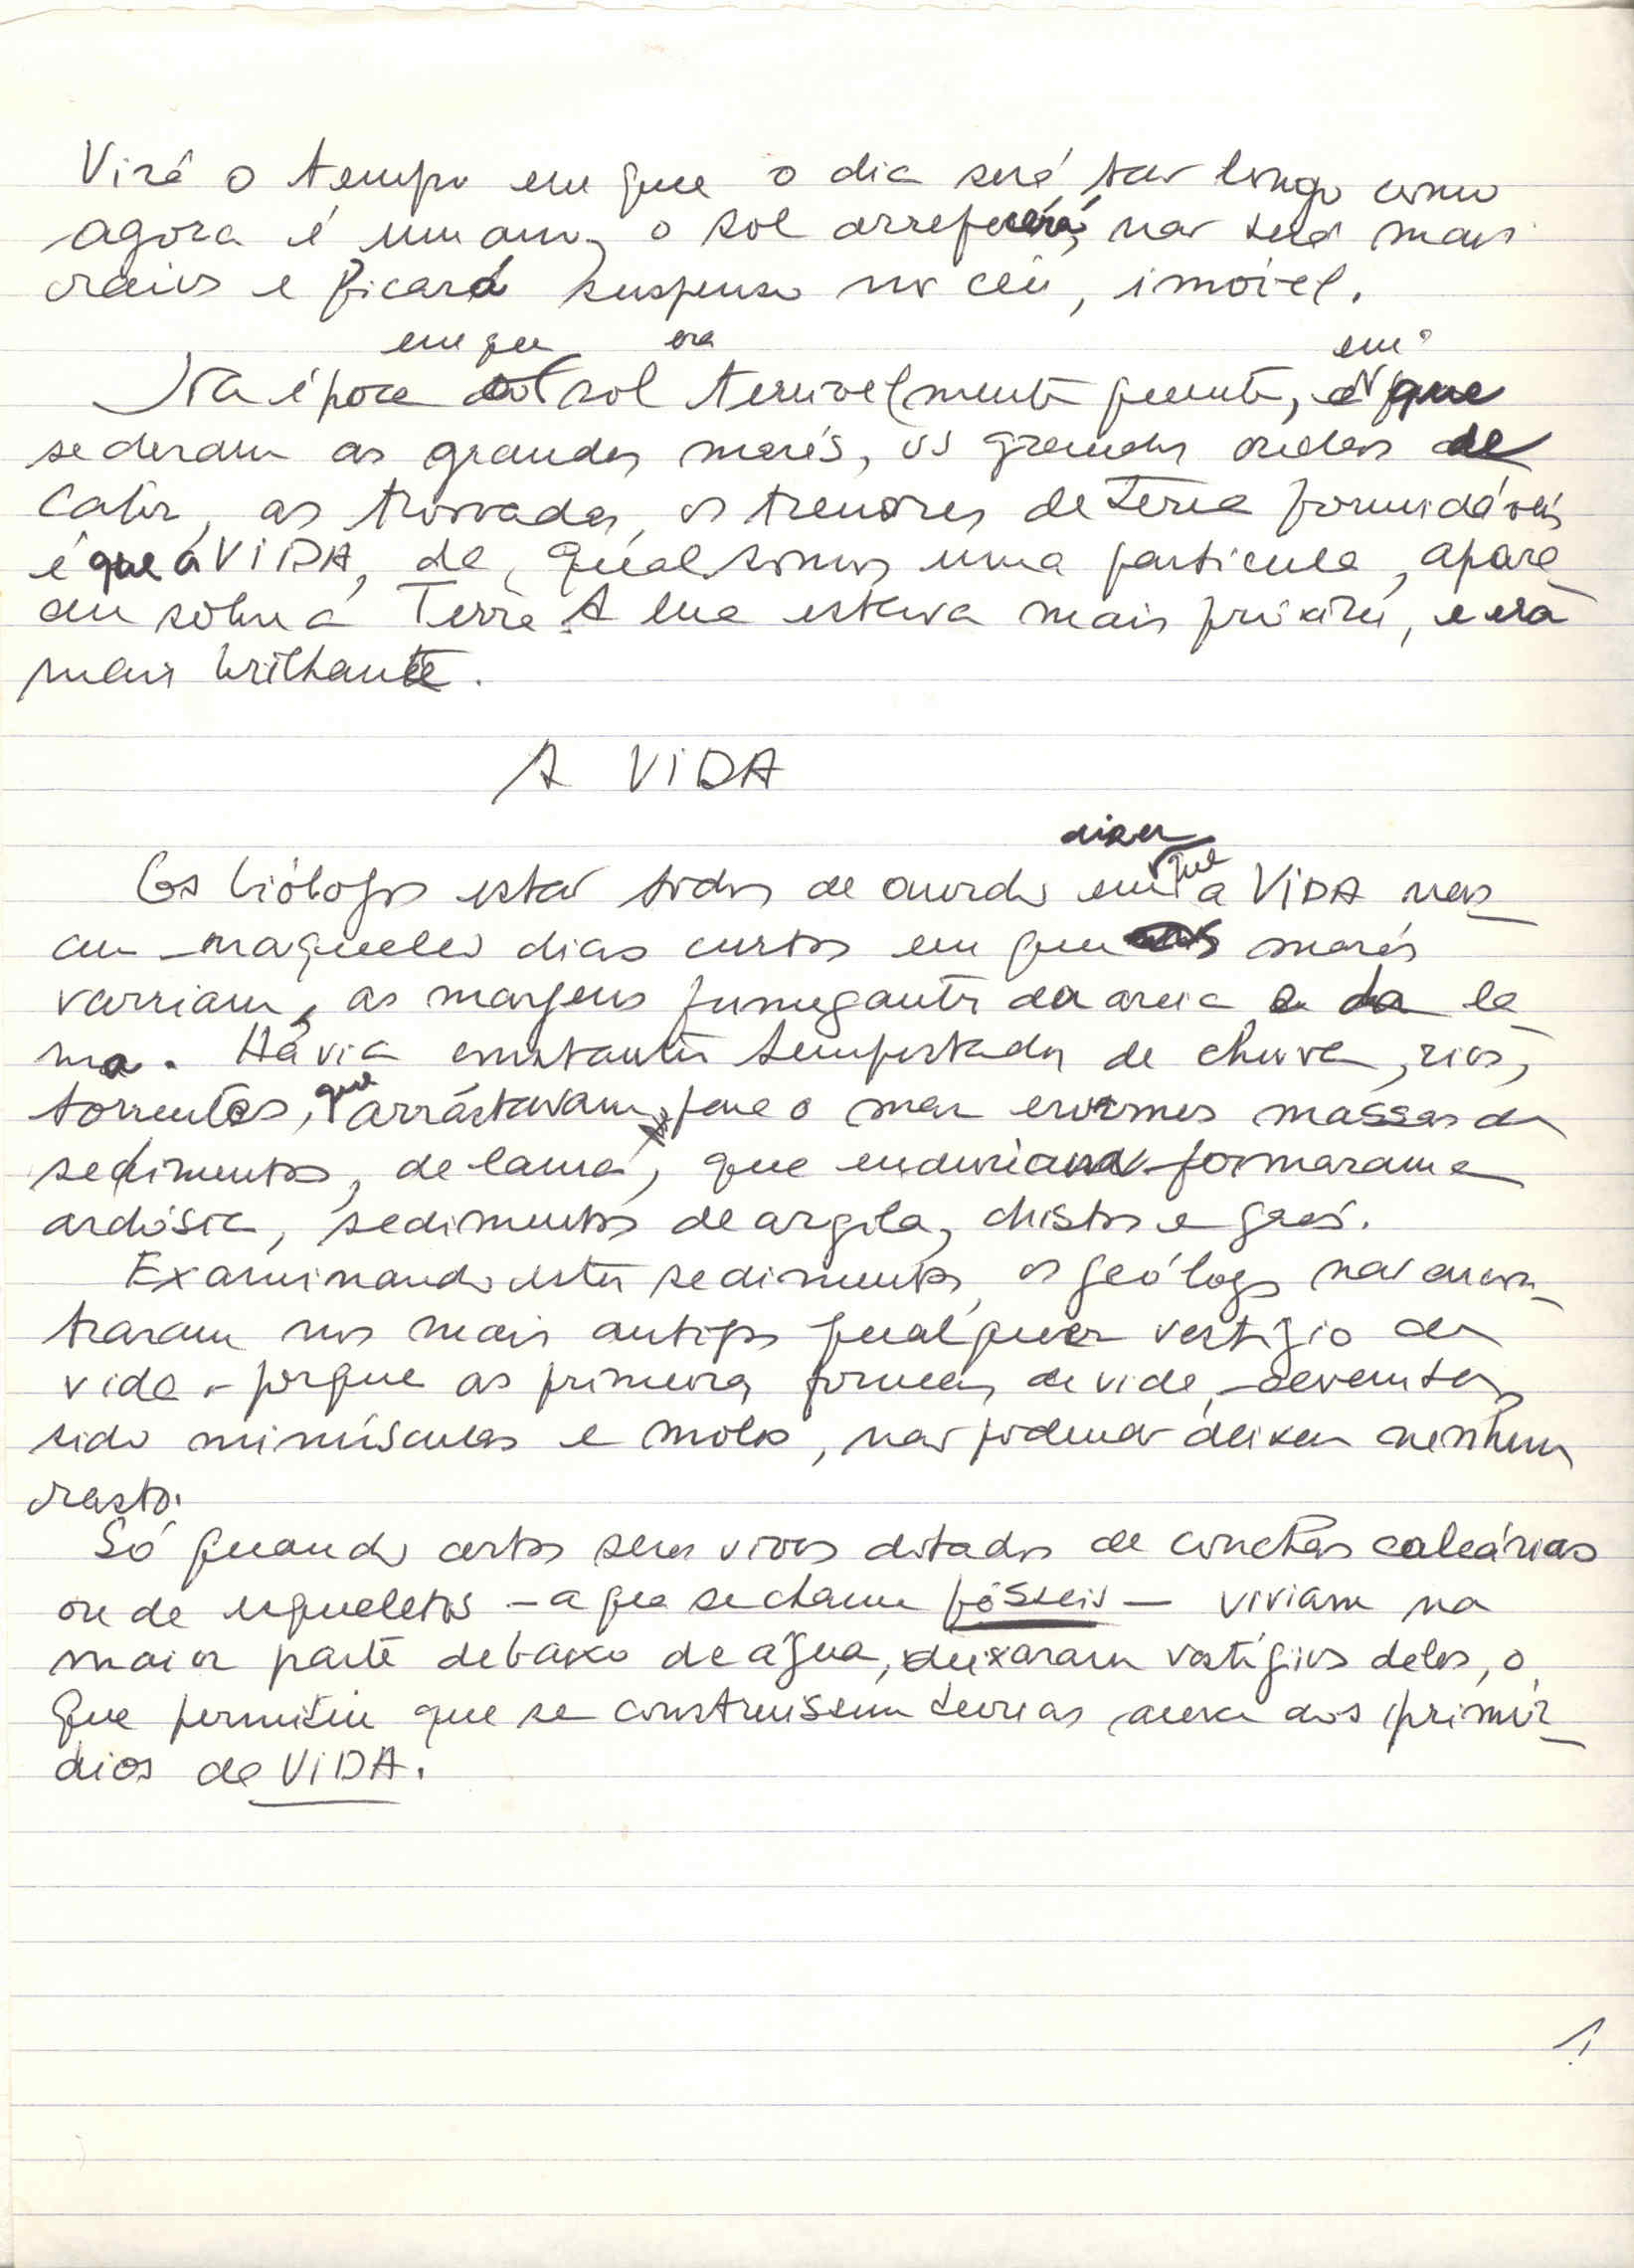 Virá o tempo em que o dia será tão longo como
agora é um ano, o sol arrefecerá, não terá mais
raios e ficará suspenso no céu, imóvel.
em que era em
Na época sol terrivelmente quente, e que
se deram as grandes marés, as grandes ondas de
calor, as trovoadas, os tremores de terra formidáveis
é que a ViDA, da qual somos uma particula, apare-
ceu sobre a Terra. A lua estava mais próxima, e era
mais brilhante.
A ViDA
dizer
que
Os biólogos estão todos de acordo em a ViDA nas-
ceu naqueles dias curtos em que marés
varriam, as margens fumegantes da areia e da la-
ma. Havia constantes tempestades de chuva, rios,
que
torrentes, arrastavam para o mar enormes massas de
sedimentos, de lama, que endureciam formaram a
ardósia, sedimentos de argila, chistos e
Examinando estes sedimentos, os geólogos não encon-
traram nos mais antigos qualquer vestígio de
vida - porque as primeiras formas de vida, devem ter
sido minúsculas e moles, não podendo deixar nenhum
rasto.
Só quando certos seres vivos dotados de conchas calcárias
ou de esqueletos - a que se chama fósseis - viviam na
maior parte debaixo de água, deixaram vestígios deles, o
que permitiu que se construissem teorias acerca dos primór-
dios da ViDA.
1